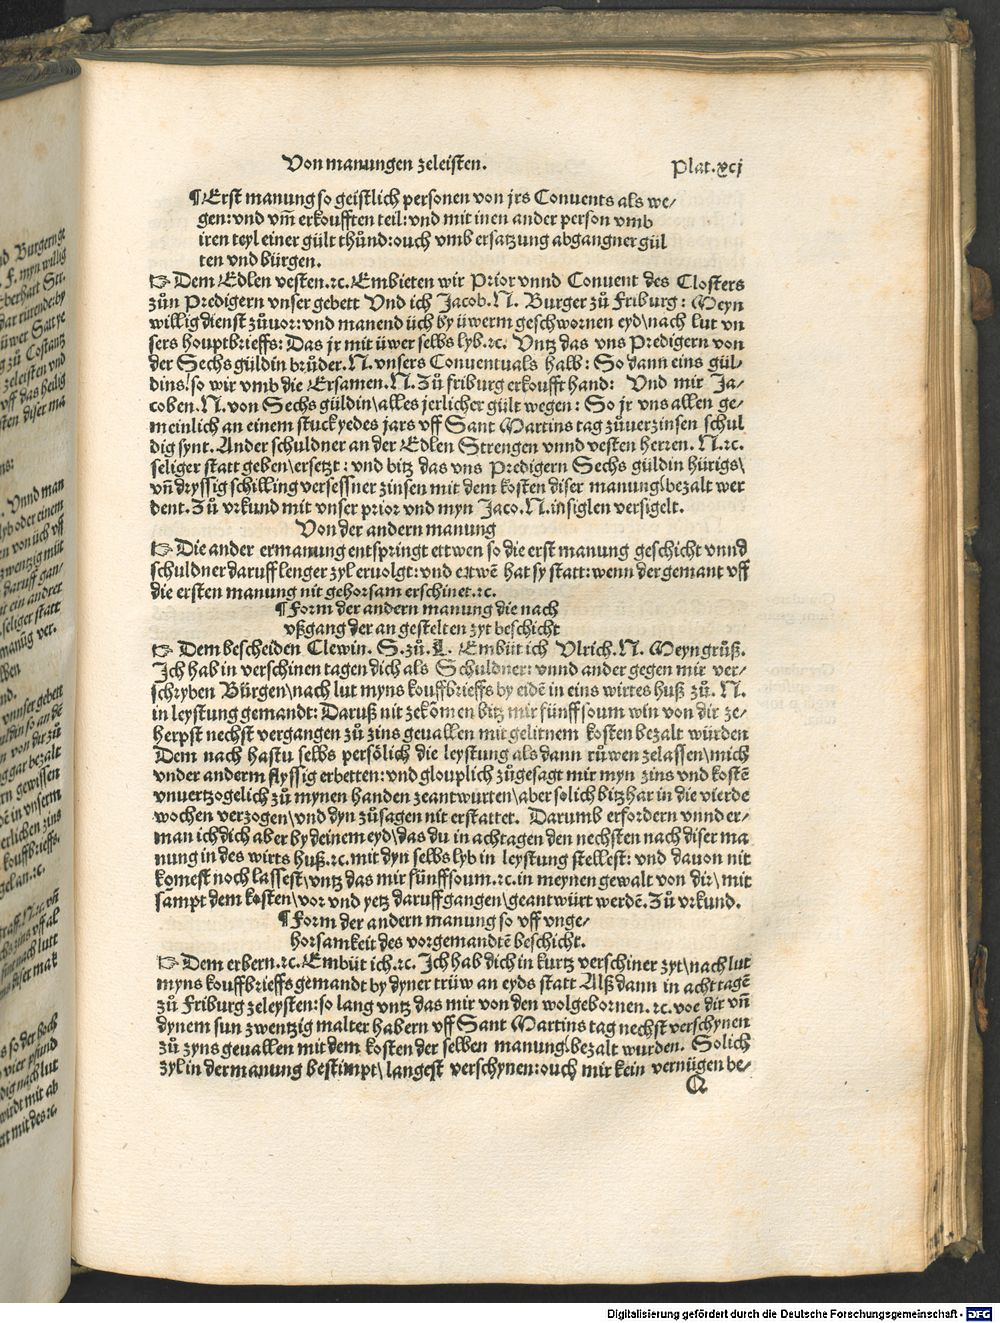 Von manungen zeleisten.
Plat.xcj
¶Erst manung so geistlich personen von jrs Conuents als we⸗
gen:vnd vm̄ erkoufften teil:vnd mit inen ander person vmb
iren teyl einer gült thůnd:ouch vmb ersatzung abgangner gül
ten vnd bürgen.
☞ Dem Edlen vesten.ꝛc.Embieten wir Prior vnnd Conuent des Closters
zůn Predigern vnser gebett Vnd ich Jacob.N. Burger zů Friburg: Meyn
willig dienst zůuor:vnd manend üch by üwerm geschwornen eyd/nach lut vn
sers houptbrieffs:Das jr mit üwer selbs lyb.ꝛc. Vntz das vns Predigern von
der Sechs güldin brůder.N.vnsers Conuentuals halb: So dann eins gül⸗
dins/so wir vmb die Ersamen.N.Zů friburg erkoufft hand: Vnd mir Ja⸗
coben.N.von Sechs güldin/alles jerlicher gült wegen: So jr vns allen ge⸗
meinlich an einem stuck yedes jars vff Sant Martins tag zůuerzinsen schul
dig synt. Ander schuldner an der Edlen Strengen vnnd vesten herren.N.ꝛc.
seliger statt geben/ersetzt:vnd bitz das vns Predigern Sechs güldin hürigs/
vn̄ dryssig schilling versessner zinsen mit dem kosten diser manung/bezalt wer
dent.Zů vrkund mit vnser prior vnd myn Jaco.N.insiglen versigelt.
Von der andern manung
☞ Die ander ermanung entspringt ettwen so die erst manung geschicht vnnd
schuldner daruff lenger zyl eruolgt:vnd etwē hat sy statt:wenn der gemant vff
die ersten manung nit gehorsam erschinet.ꝛc.
¶Form der andern manung die nach
vßgang der an gestelten zyt beschicht
☞ Dem bescheiden Clewin. S.zů.L. Embüt ich Vlrich.N.Meyn grůß.
Jch hab in verschinen tagen dich als Schuldner:vnnd ander gegen mir ver⸗
schryben Bürgen/nach lut myns kouffbrieffs by eidē in eins wirtes huß zů.N.
in leystung gemandt:Daruß nit zekōmen bitz mir fünff soum win von dir ze⸗
herpst nechst vergangen zů zins geuallen mit gelitnem kosten bezalt würden
Dem nach hastu selbs persōlich die leystung als dann růwen zelassen/mich
vnder anderm flyssig erbetten:vnd glouplich zůgesagt mir myn zins vnd kostē
vnuertzogelich zů mynen handen zeantwurten/aber solich bitzhar in die vierde
wochen verzogen/vnd dyn zůsagen nit erstattet. Darumb erfordern vnnd er⸗
man ich dich aber by deinem eyd/das du in achtagen den nechsten nach diser ma
nung in des wirts huß.ꝛc.mit dyn selbs lyb in leystung stellest:vnd dauon nit
komest noch lassest/vntz das mir fünff soum.ꝛc.in meynen gewalt von dir/mit
sampt dem kosten/vor vnd yetz daruff gangen/geantwürt werdē.Zů vrkund.
¶Form der andern manung so vff vnge⸗
horsamkeit des vorgemandtē beschicht.
☞ Dem erbern.ꝛc.Embüt ich.ꝛc. Jch hab dich in kurtz verschiner zyt/nach lut
myns kouffbrieffs gemandt by dyner trüw an eyds statt Alß dann in acht tagē
zů Friburg zeleysten:so lang vntz das mir von den wolgebornen.ꝛc.voe dir vn̄
dynem sun zwentzig malter habern vff Sant Martins tag nechst verschynen
zů zyns geuallen mit dem kosten der selben manung/bezalt wurden. Solich
zyl in der manung bestimpt/langest verschynen:ouch mir kein vernügen be⸗
Q
Digitalisierung gefördert durch die Deutsche Forschungsgemeinschaft - DFG